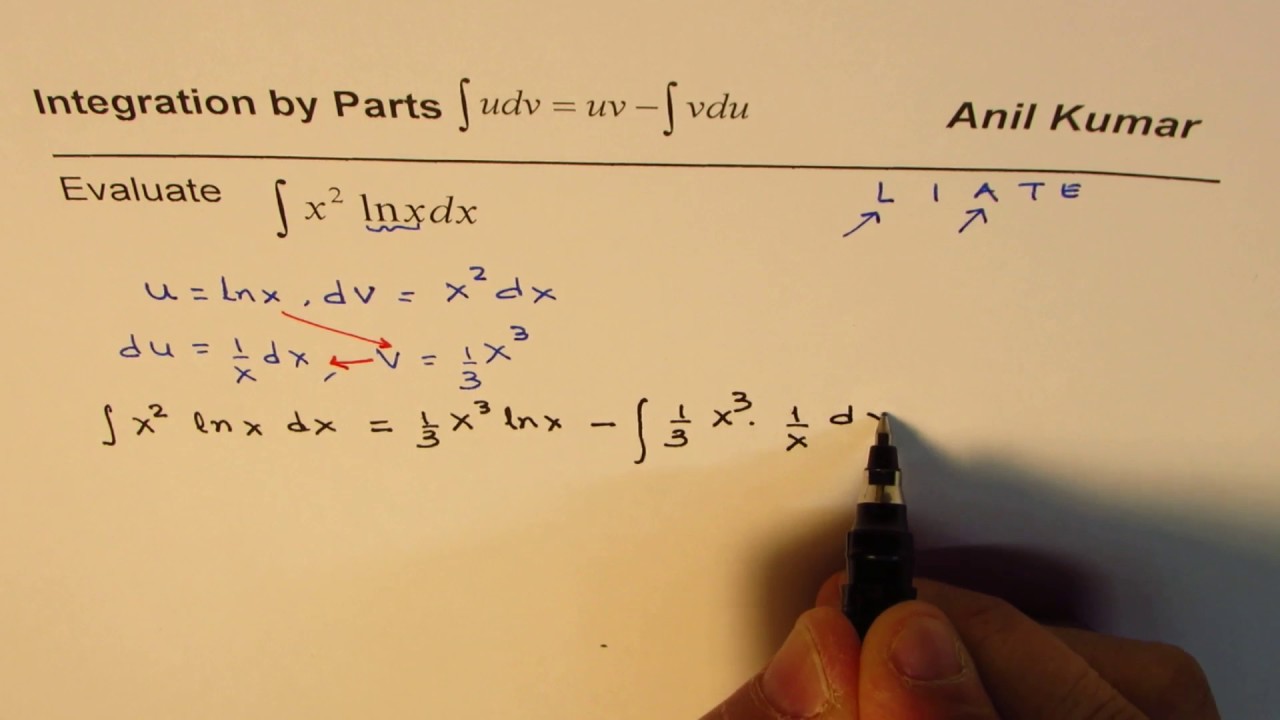 Integration by Parts ∫udv = uv − ∫vdu
Anil Kumar
Evaluate ∫ x² lnx dx
L I A T E
u = lnx , dv = x² dx
du = 1/x dx , v = 1/3 x³
∫ x² lnx dx = 1/3 x³ lnx − ∫ 1/3 x³ · 1/x dx